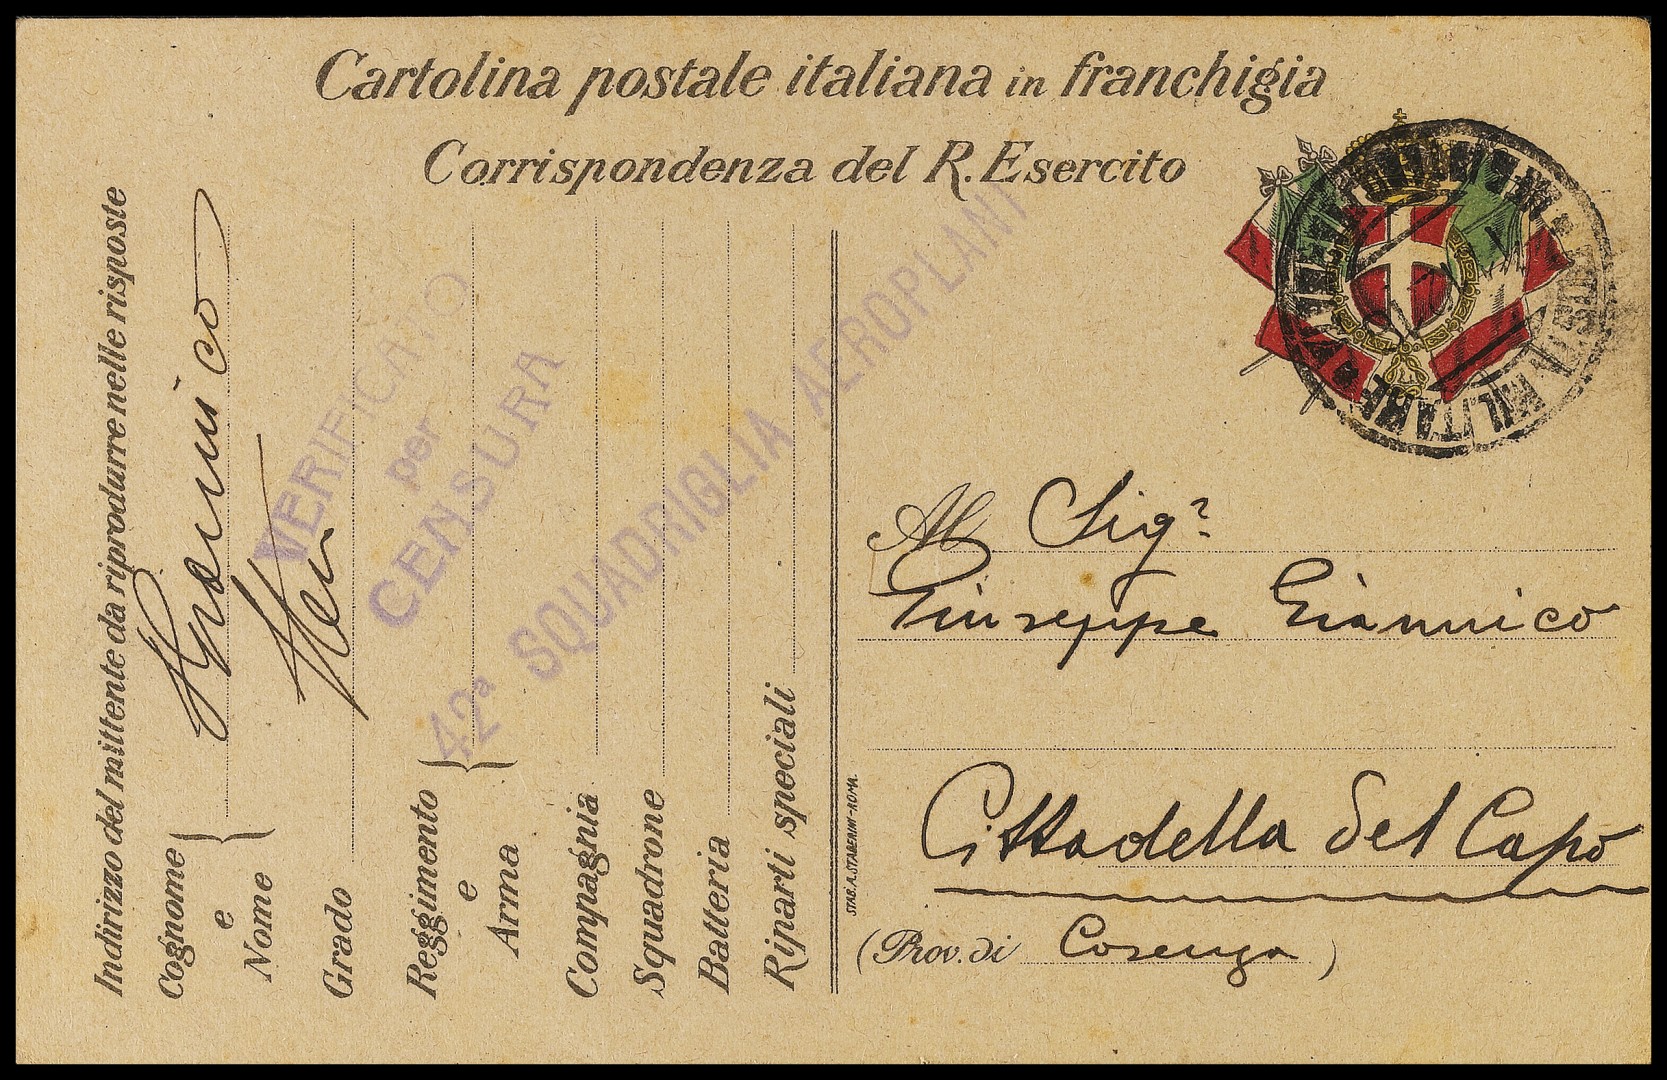 Cartolina postale italiana in franchigia
Corrispondenza del R. Esercito
Indirizzo del mittente da riprodurre nelle risposte
Cognome
e
Nome
Grado
Ten
Reggimento
e
Arma
Compagnia
Squadrone
Batteria
Riparti speciali
VERIFICATO
per
CENSURA
42ª SQUADRIGLIA AEROPLANI
STAB. A. STADERINI-ROMA.
Al Sigʳ
Giuseppe Giannico
Cittadella del Capo
(Prov. di Cosenza)
MILITARE